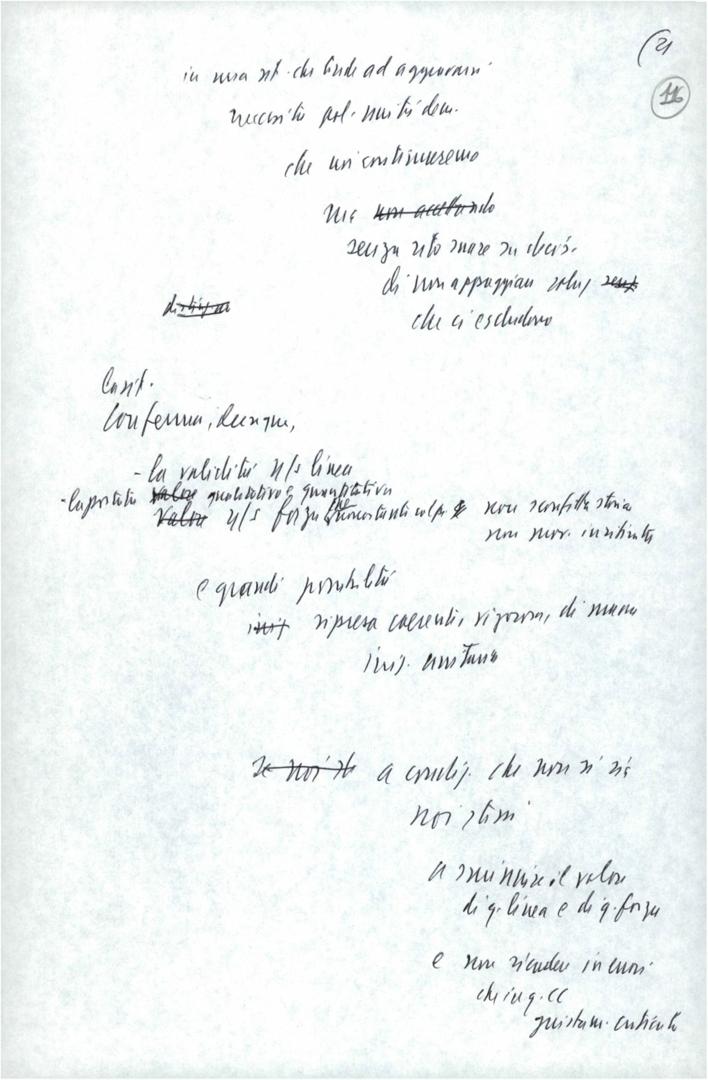 (21
116
in una sit. che tende ad aggravarsi
necessità pol. unità dem.
che noi continueremo
ma non accettando
senza ritornare su decis.
di non appoggiare soluz senz
che ci escludono
disting
Cost.
Conferma, dunque,
- la validità n/s linea
- la portata valore qualitativa e quantitativa
valore n/s forza che nonostante colpi non sconfitta storica
non mov. in ritirata
e grandi possibilità
iniz ripresa coerente, vigorosa, di nuova
iniz. unitaria
se noi st a condiz. che non si sia
noi stessi
a sminuire il valore
di q. linea e di q. forza
e non ricadere in errori
che in q. CC
giustam. criticati